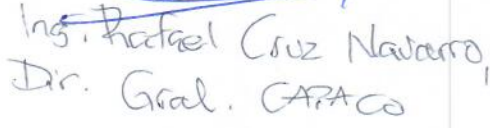 Ing. Rafael Cruz Navarro,
Dir. Gral. CAPACO